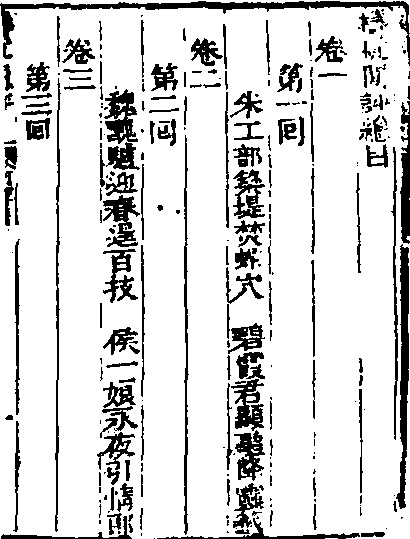 檮杌閒評總目
卷一
第一回
朱工部築堤焚蛇穴　碧霞君顯聖降靈籤
卷二
第二回
魏醜驢迎春逞百技　侯一娘永夜引情郎
卷三
第三回